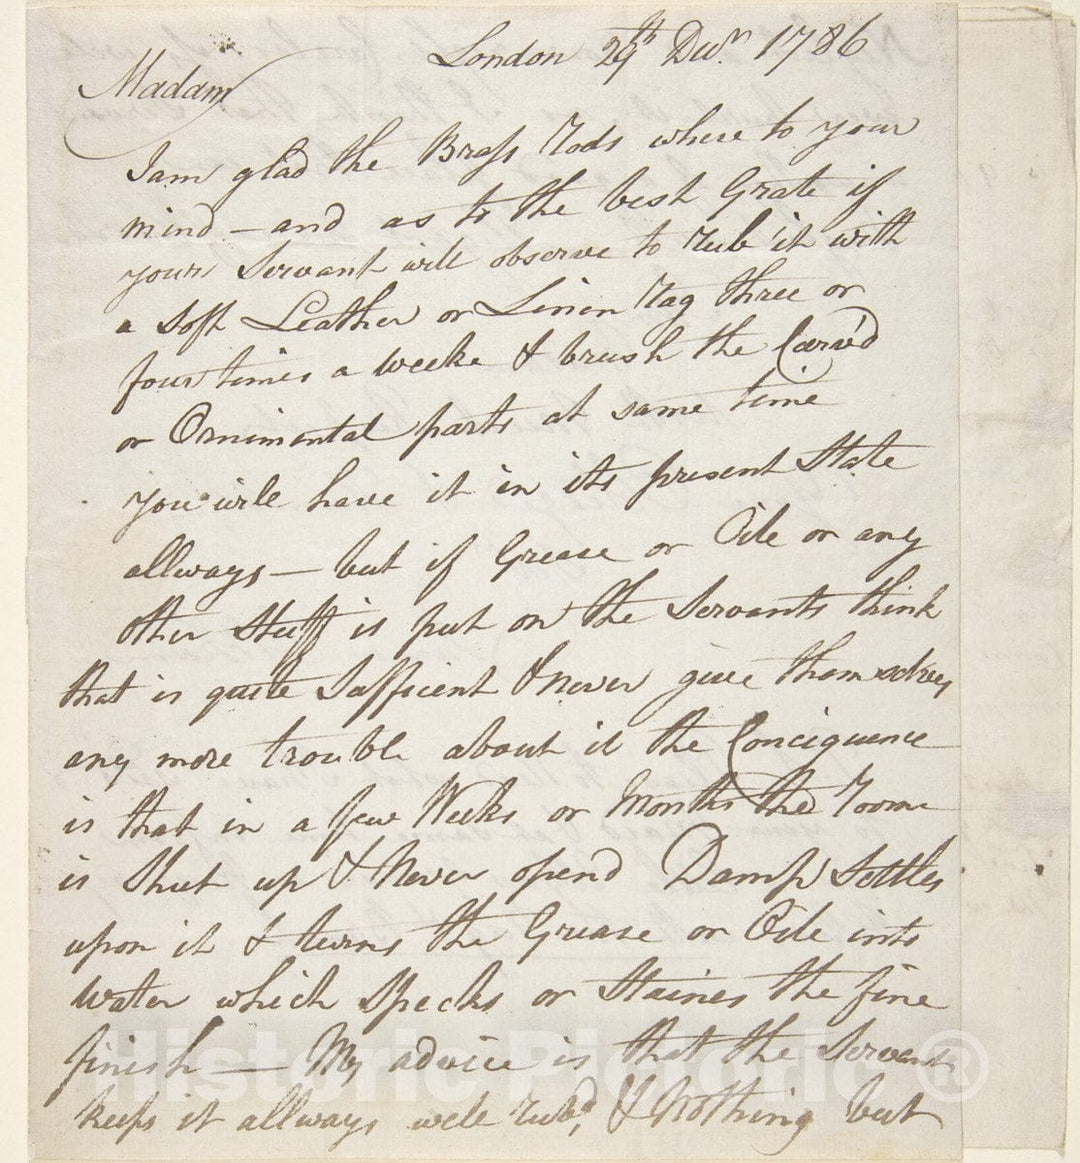 London 29th Decr. 1786
Madam
I am glad the Brass Rods where to your
mind - and as to the best Grate if
your Servant will observe to rub it with
a soft Leather or Linin Rag three or
four times a weeke & brush the Carv'd
or Ornimental parts at same time
you will have it in its present State
allways - but if Grease or Oile or any
other Stuff is put on the Servants think
that is quite Sufficent & never give themselves
any more trouble about it the Conciquence
is that in a few Weeks or Months the Roome
is Shut up & Never opend Damp Settles
upon it & turns the Grease or Oile into
Water which Specks or Staines the fine
finish - My advice is that the Servants
keeps it allways well rubd, & Nothing but
Historic Pictoric ®